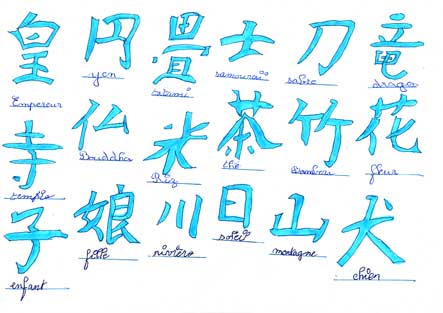 皇 円 畳 士 刀 竜
Empereur yen tatami samouraï sabre dragon
寺 仏 米 茶 竹 花
temple Bouddha Riz thé Bambou fleur
子 娘 川 日 山 犬
enfant fille rivière soleil montagne chien